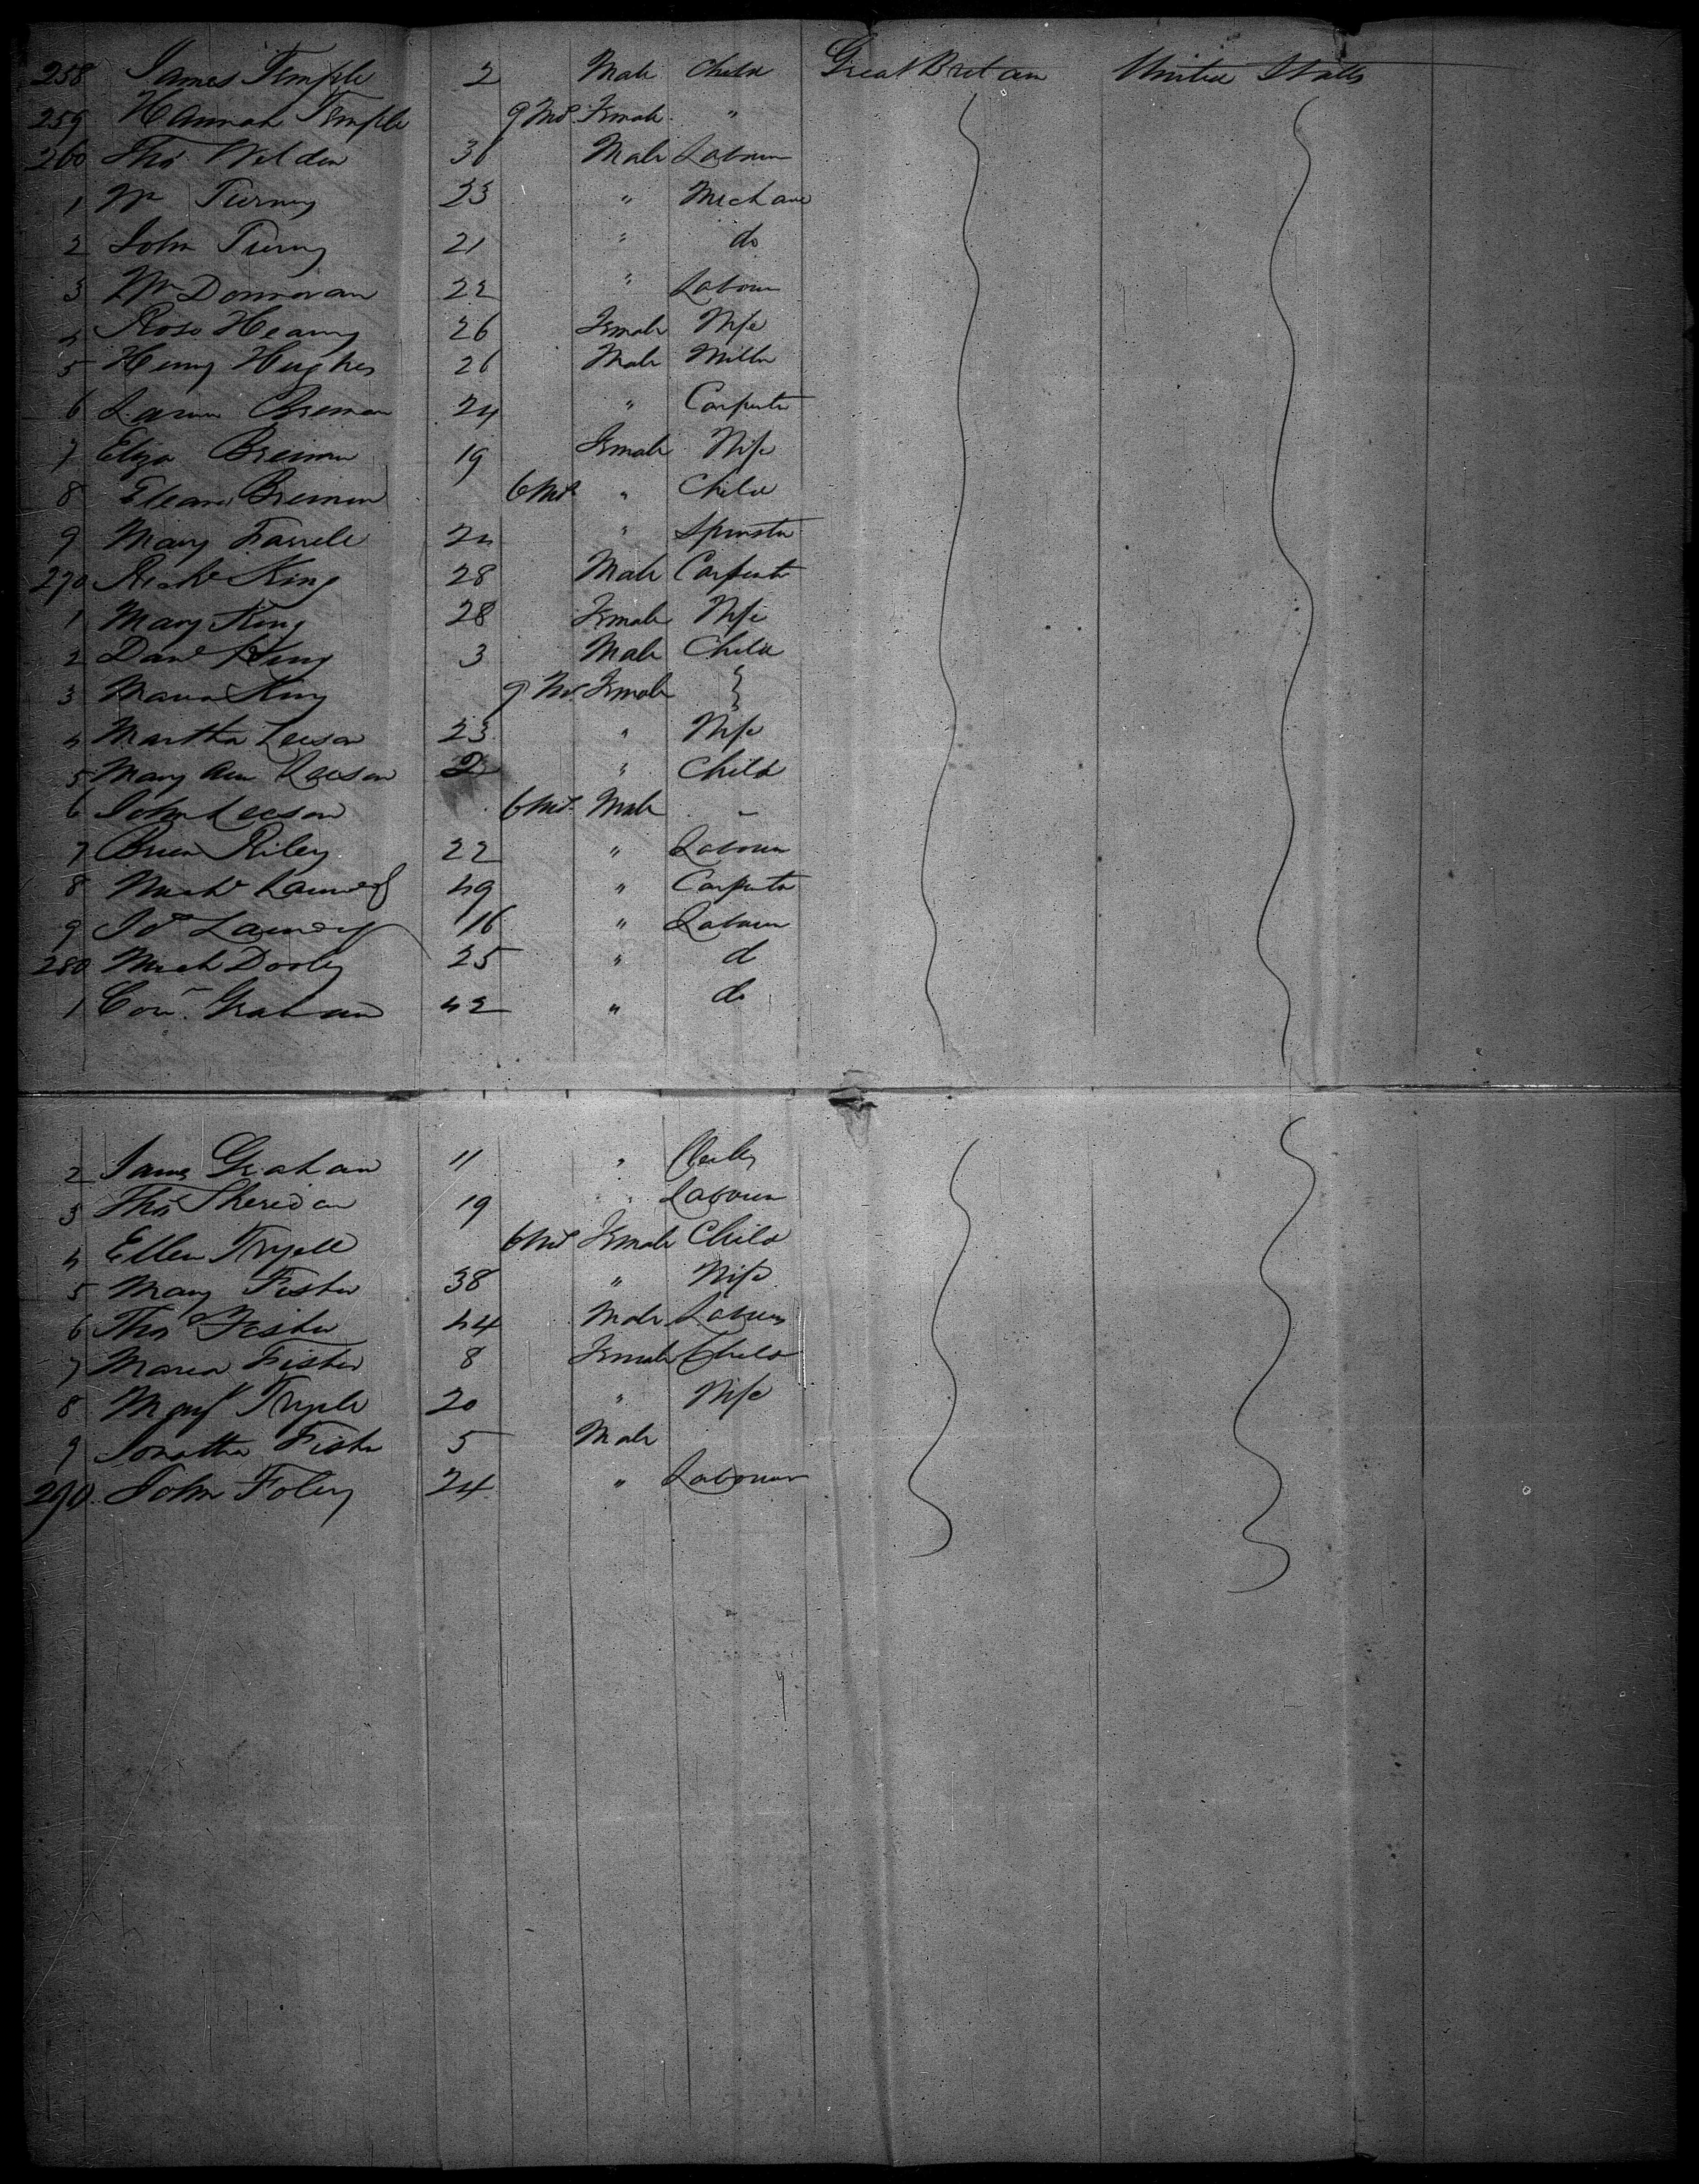 258 James Temple 2 Male Child Great Britain United States
259 Hannah Temple 9 Mos Female "
260 Thos Weldon 36 Male Labourer
1 Wm Tierney 23 " Mechanic
2 John Tierney 21 " do
3 Wm Donnovan 22 " Labourer
4 Rose Heany 26 Female Wife
5 Henry Hughes 26 Male Miller
6 Brennan 24 " Carpenter
7 Eliza Brennan 19 Female Wife
8 Eleanor Brennan 6 Mos " Child
9 Mary Farrell 24 " Spinster
270 Richd King 28 Male Carpenter
1 Mary King 28 Female Wife
2 Danl King 3 Male Child
3 Maria King 9 Mos Female
4 Martha Leeson 23 " Wife
5 Mary Ann Leeson 2 " Child
6 John Leeson 6 Mos Male "
7 Brien Riley 22 " Labourer
8 Michl 49 " Carpenter
9 16 " Labourer
280 Mich Dooley 25 " d
1 Con. Graham 42 " do
2 James Graham 11 "
3 Thos Sheridan 19 " Labourer
4 Ellen Tryell 6 Mos Female Child
5 Mary Fisher 38 " Wife
6 Thos Fisher 44 Male Labourer
7 Maria Fisher 8 Female Child
8 Mary Tryell 20 " Wife
9 Jonathan Fisher 5 Male
290 John Foley 24 " Labourer